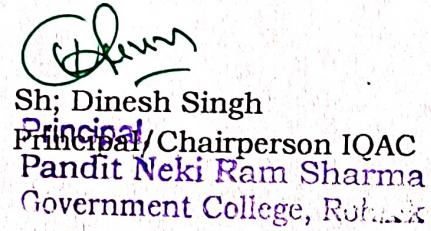 Sh; Dinesh Singh
Principal/Chairperson IQAC
Principal,
Pandit Neki Ram Sharma
Government College, Rohtak